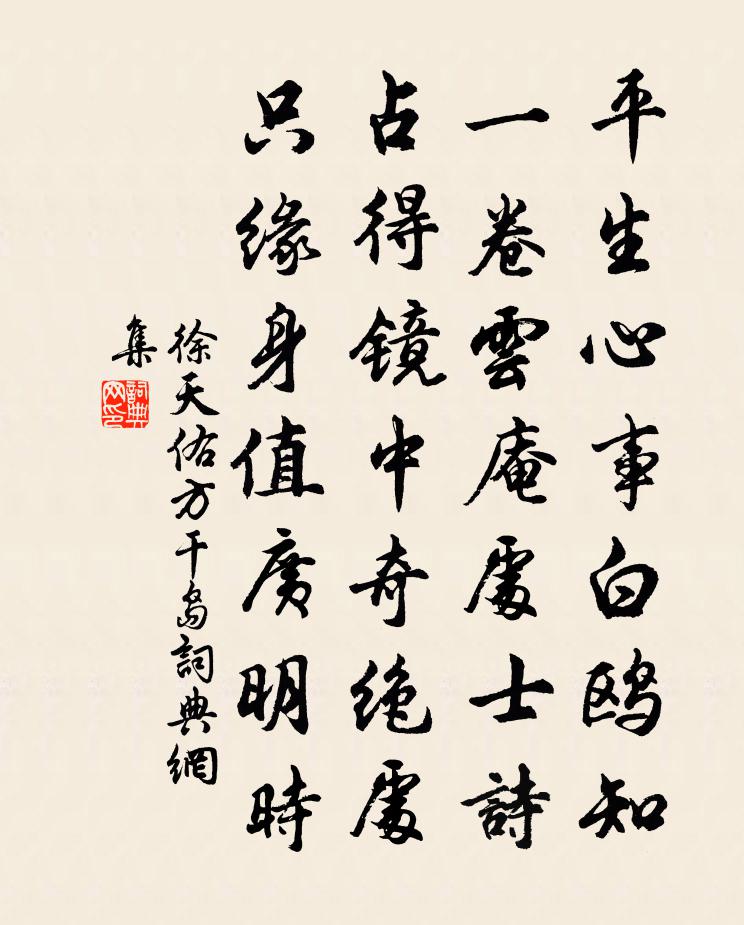 平生心事白鸥知
一卷雲庵處士詩
占得镜中奇绝處
只缘身值廣明時
徐天佑方干岛詞典網
集
詞典
网印